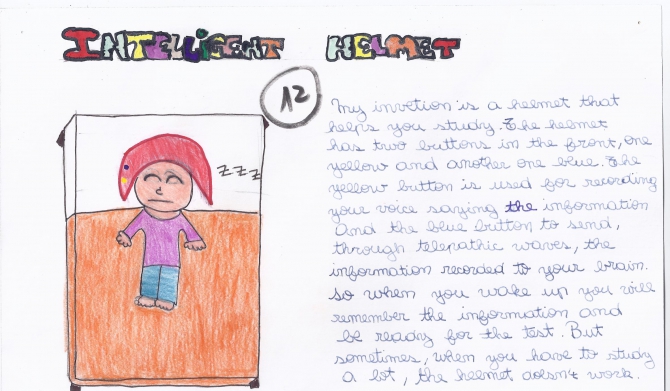 INTELLIGENT HELMET
12
zzz
My invetion is a helmet that
helps you study. The helmet
has two buttons in the front, one
yellow and another one blue. The
yellow button is used for recording
your voice saying the information
And the blue button to send,
through telepathic waves, the
information recorded to your brain.
So when you wake up you will
remember the information and
be ready for the test. But
sometimes, when you have to study
a lot, the helmet doesn't work.